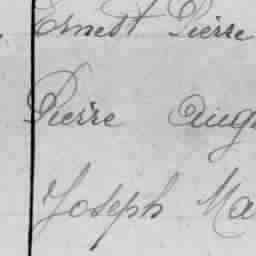 Ernest Pierre
Pierre Aug
Joseph Ma